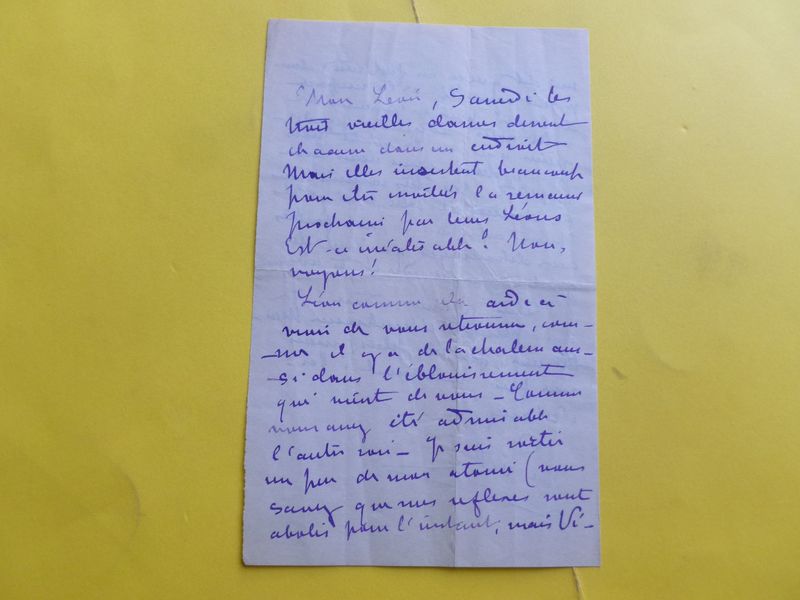 Mon Léon, Samedi les
trois vieilles dames dinent
chacune dans un endroit
Mais elles insistent beaucoup
pour être invitées la semaine
prochaine par leurs Léons
Est-ce irréalisable? Non,
voyons!
Léon comme
vrai de vous retrouver, com-
-me il y a de la chaleur aus-
-si dans l'éblouissement
qui vient de vous - Comme
vous avez été admirable
l'autre soir - Je suis sortie
un peu de mon atonie (vous
savez que mes reflexes sont
abolis pour l'instant, mais Vi-